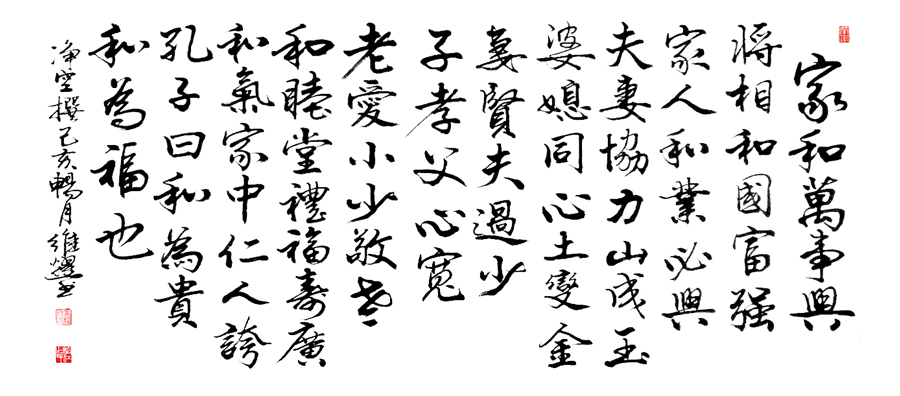 家和萬事興
將相和國富强
家人和業必興
夫妻協力山成玉
婆媳同心土變金
妻賢夫過少
子孝父心寬
老愛小少敬老
和睦堂禮福壽廣
和氣家中仁人誇
孔子曰和為貴
和為福也
净空撰己亥暢月維燿書